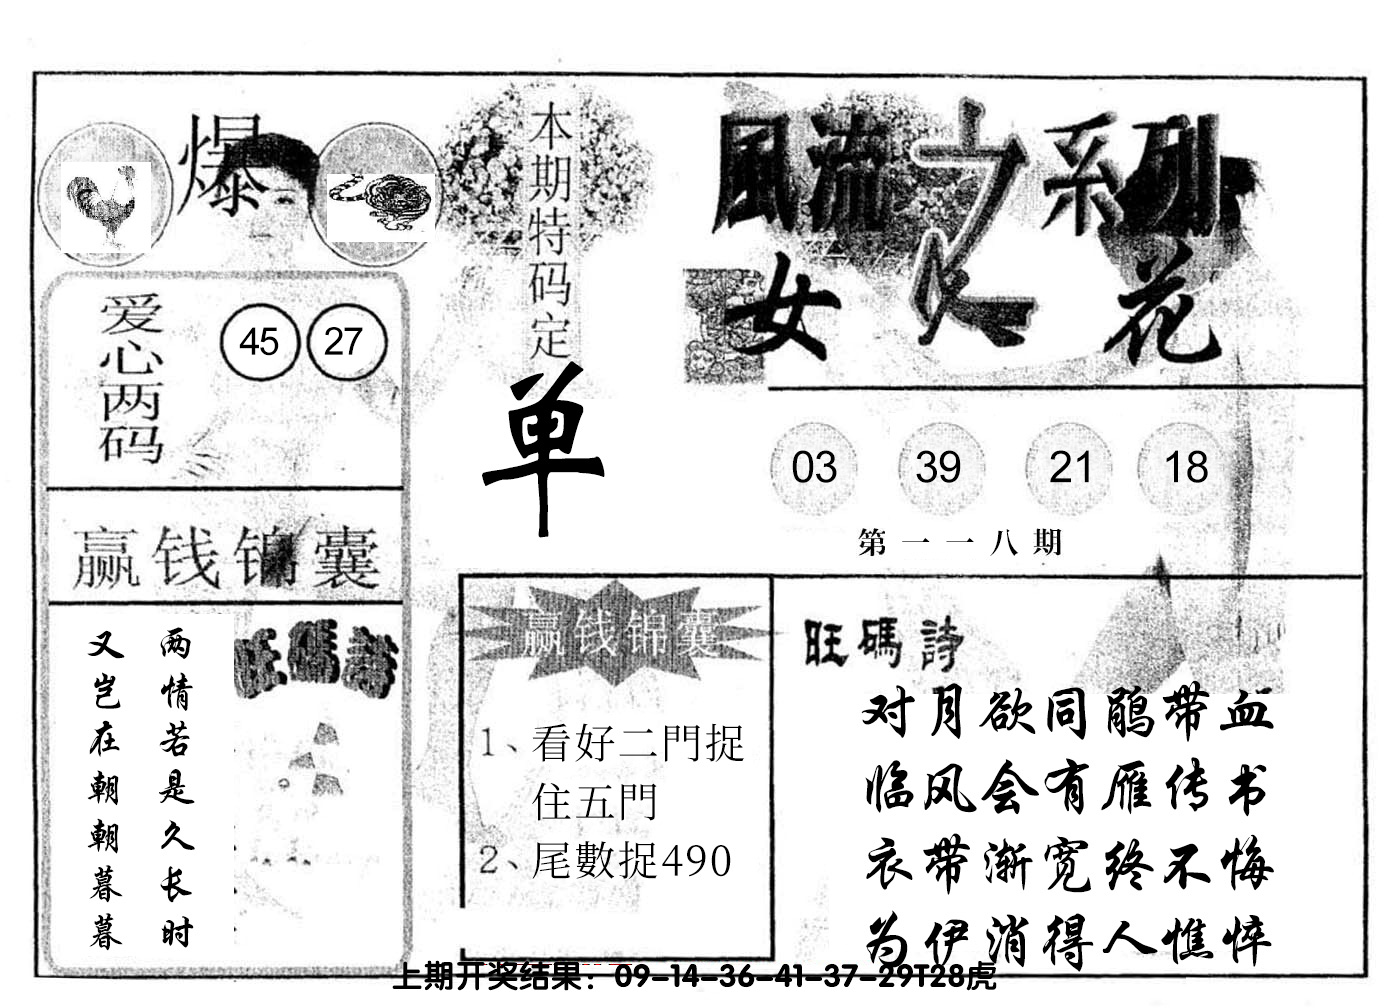 爆
爱心两码
45 27
赢钱锦囊
两情若是久长时
又岂在朝朝暮暮
旺碼詩
本期特码定
单
風流之系列
女人花
03 39 21 18
第一一八期
赢钱锦囊
1、看好二門捉
住五門
2、尾數捉490
旺碼詩
对月欲同鹃带血
临风会有雁传书
衣带渐宽终不悔
为伊消得人憔悴
上期开奖结果：09-14-36-41-37-29T28虎